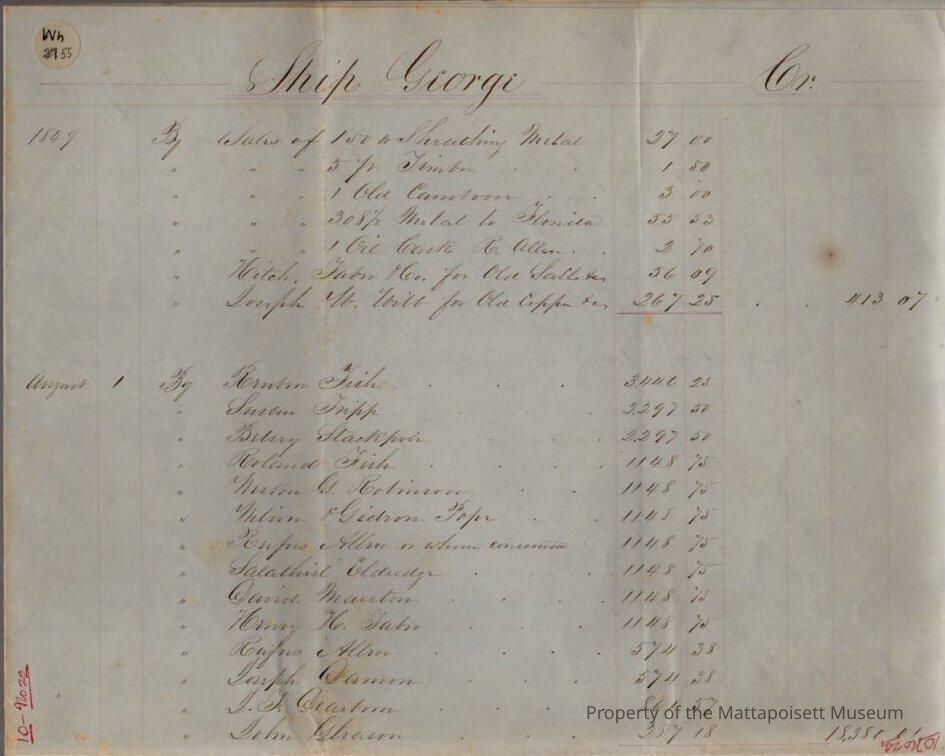 Wh
2955
Ship George Cr.
1849 By Sales of 150 # Sheathing Metal 27 00
" " " 5 ft Timber 1 50
" " " 1 Old Camboose 3 00
" " " 308 # Metal to Florida 55 53
" " " 1 Oil Cask R. Allen 2 70
" Hitch, Taber & Co. for Old Sails &c 56 09
" Joseph W. for Old Copper &c 267 25 413 07
August 1 By Reuben Fish 25
" Susan Tripp 2297 50
" Betsey Stackpole 2297 50
" Roland Fish 1148 75
" Weston G. Robinson 1148 75
" & Gideon Pope 1148 75
" Rufus Allen or whom concerned 1148 75
" Salathiel Eldredge 1148 75
" David 1148 75
" Henry H. Taber 1148 75
" Rufus Allen 574 38
" Joseph Damon 574 38
" Dearborn
" John Gleason 287 18
Property of the Mattapoisett Museum